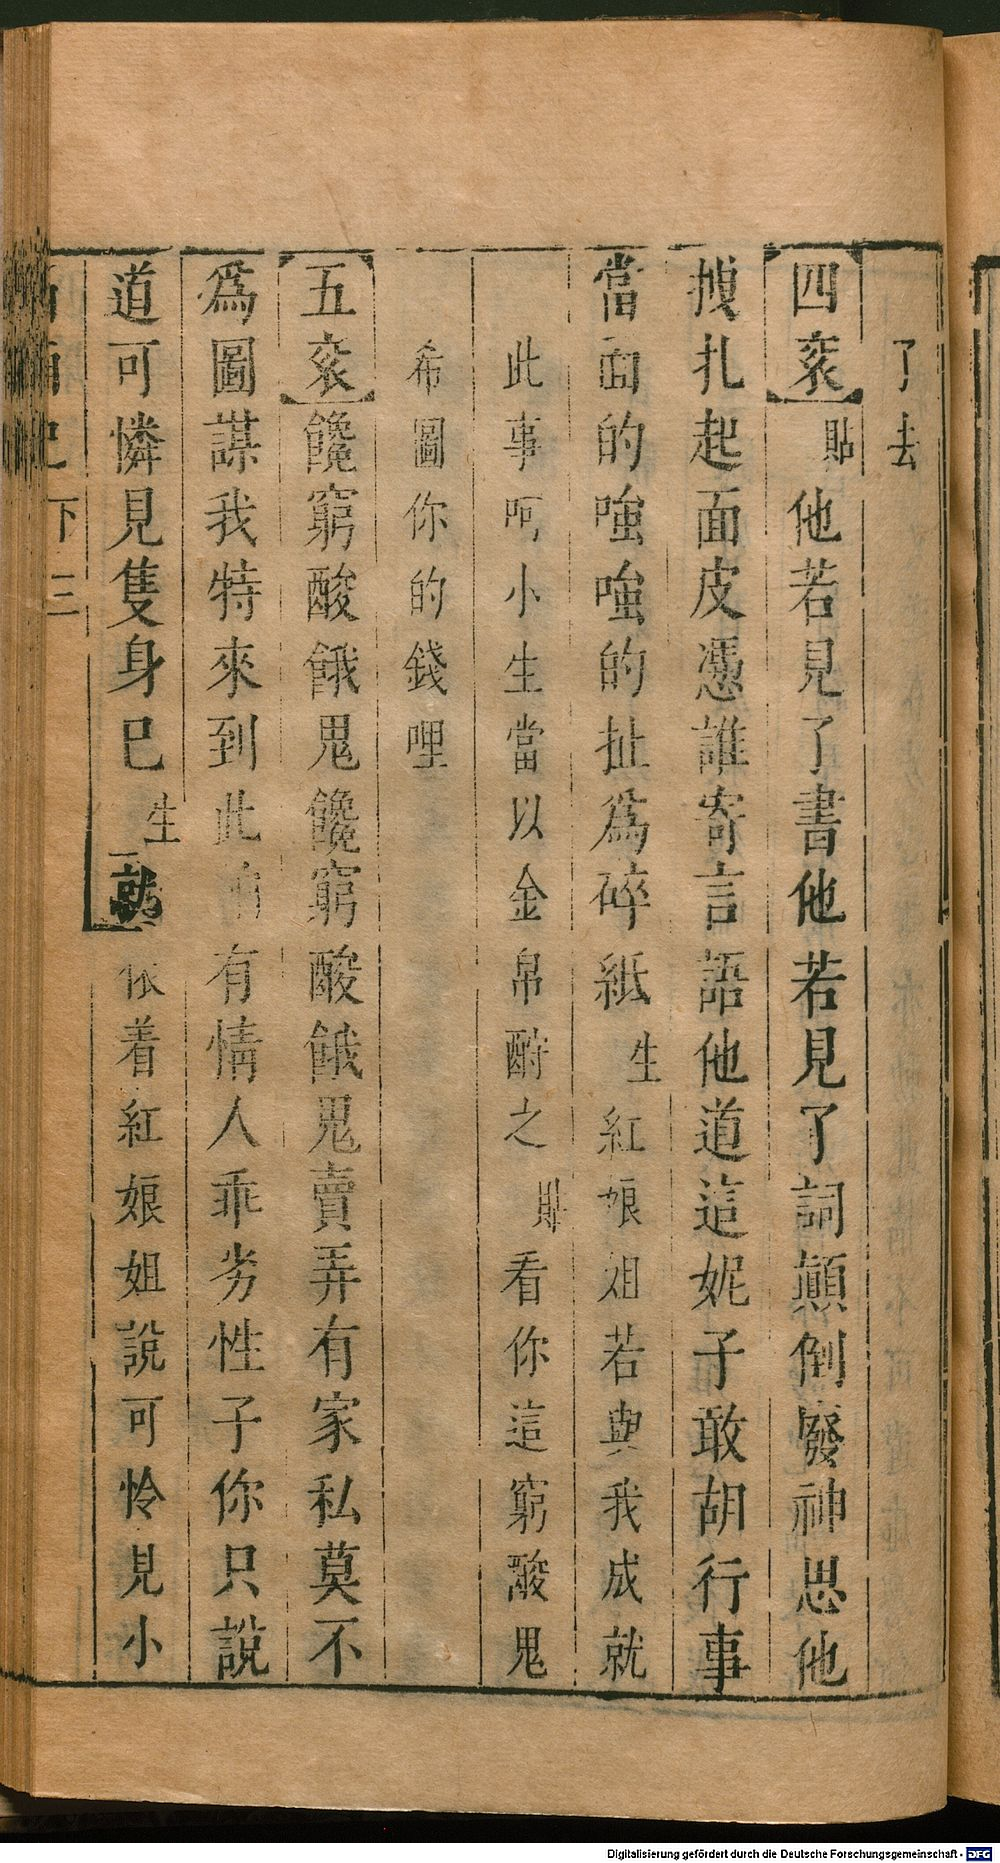 了去
四煞貼他若見了書他若見了詞顛倒廢神思他
拽扎起面皮憑誰寄言語他道這妮子敢胡行事
當面的嗤嗤的扯為碎紙生紅娘姐若與我成就
此事呵小生當以金帛酧之貼看你這窮酸鬼
希圖你的錢哩
五煞饞窮酸餓鬼饞窮酸餓鬼賣弄有家私莫不
爲圖謀我特來到此有情人乖劣性子你只說
道可憐見隻身已生就依着紅娘姐說可怜見小
下 三
Digitalisierung gefördert durch die Deutsche Forschungsgemeinschaft - DFG